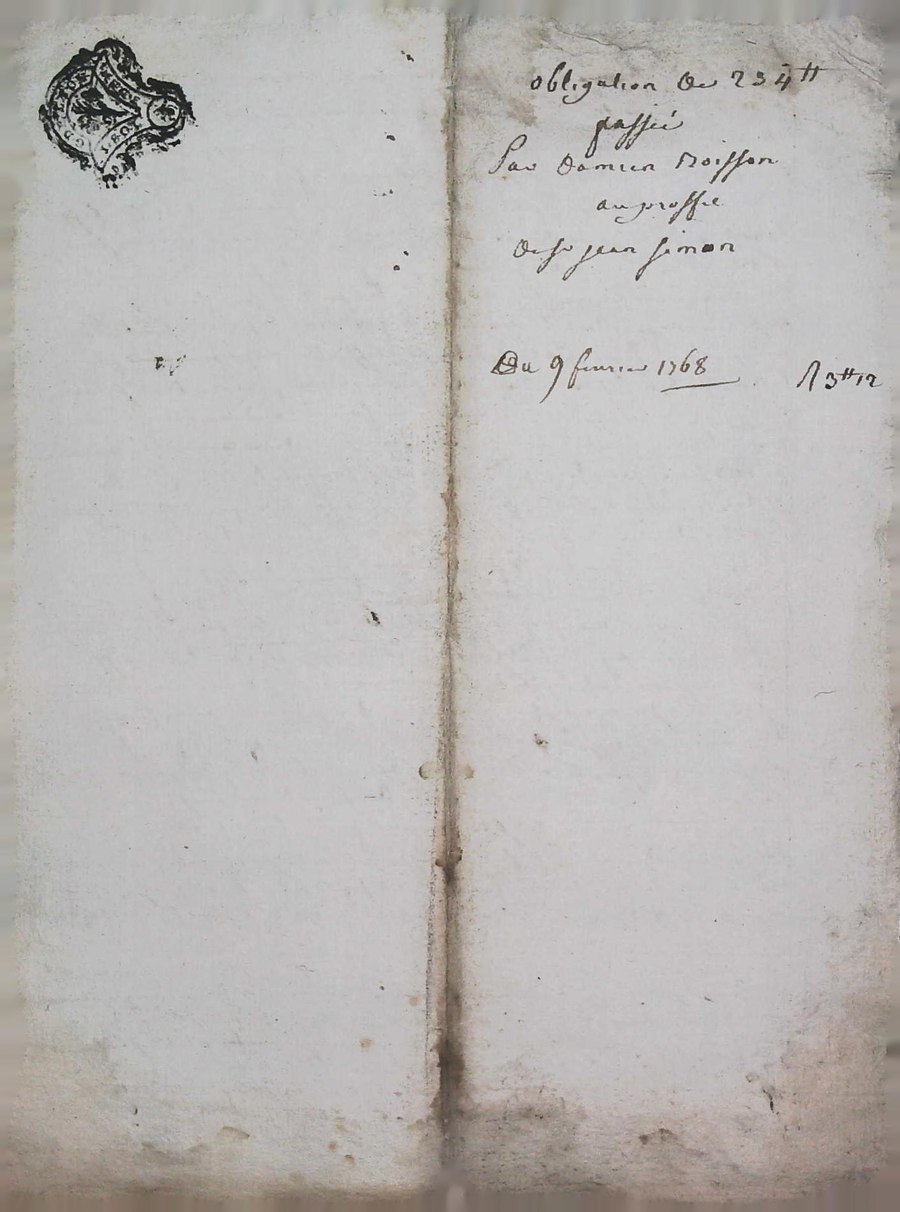 obligation de 234⁠ᵗᵗ
passée
Par Damien Noisson
au proffit
de Sr jean simon
Du 9 fevrier 1768
3ᵗᵗ12